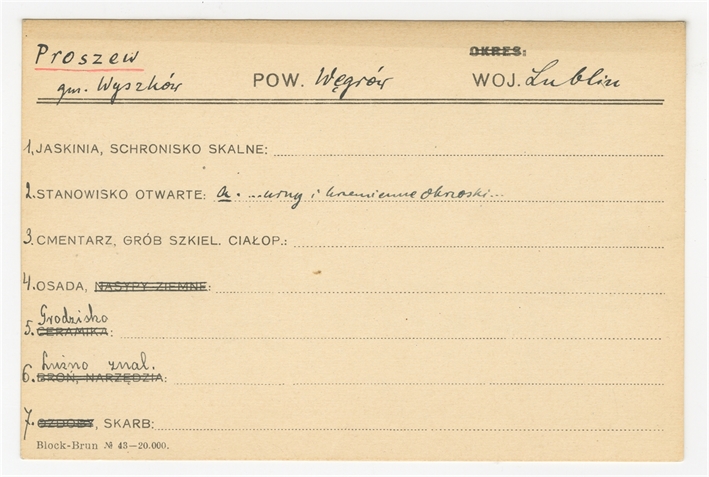 Proszew OKRES:
gm. Wyszków POW. Węgrów WOJ. Lublin
1. JASKINIA, SCHRONISKO SKALNE:
2. STANOWISKO OTWARTE: a. ...urny i krzemienne okrzeski...
3. CMENTARZ, GRÓB SZKIEL. CIAŁOP.:
4. OSADA, NASYPY ZIEMNE:
Grodzisko
5. CERAMIKA:
Luźno znal.
6. BROŃ, NARZĘDZIA:
7. OZDOBY, SKARB:
Block-Brun № 43—20.000.